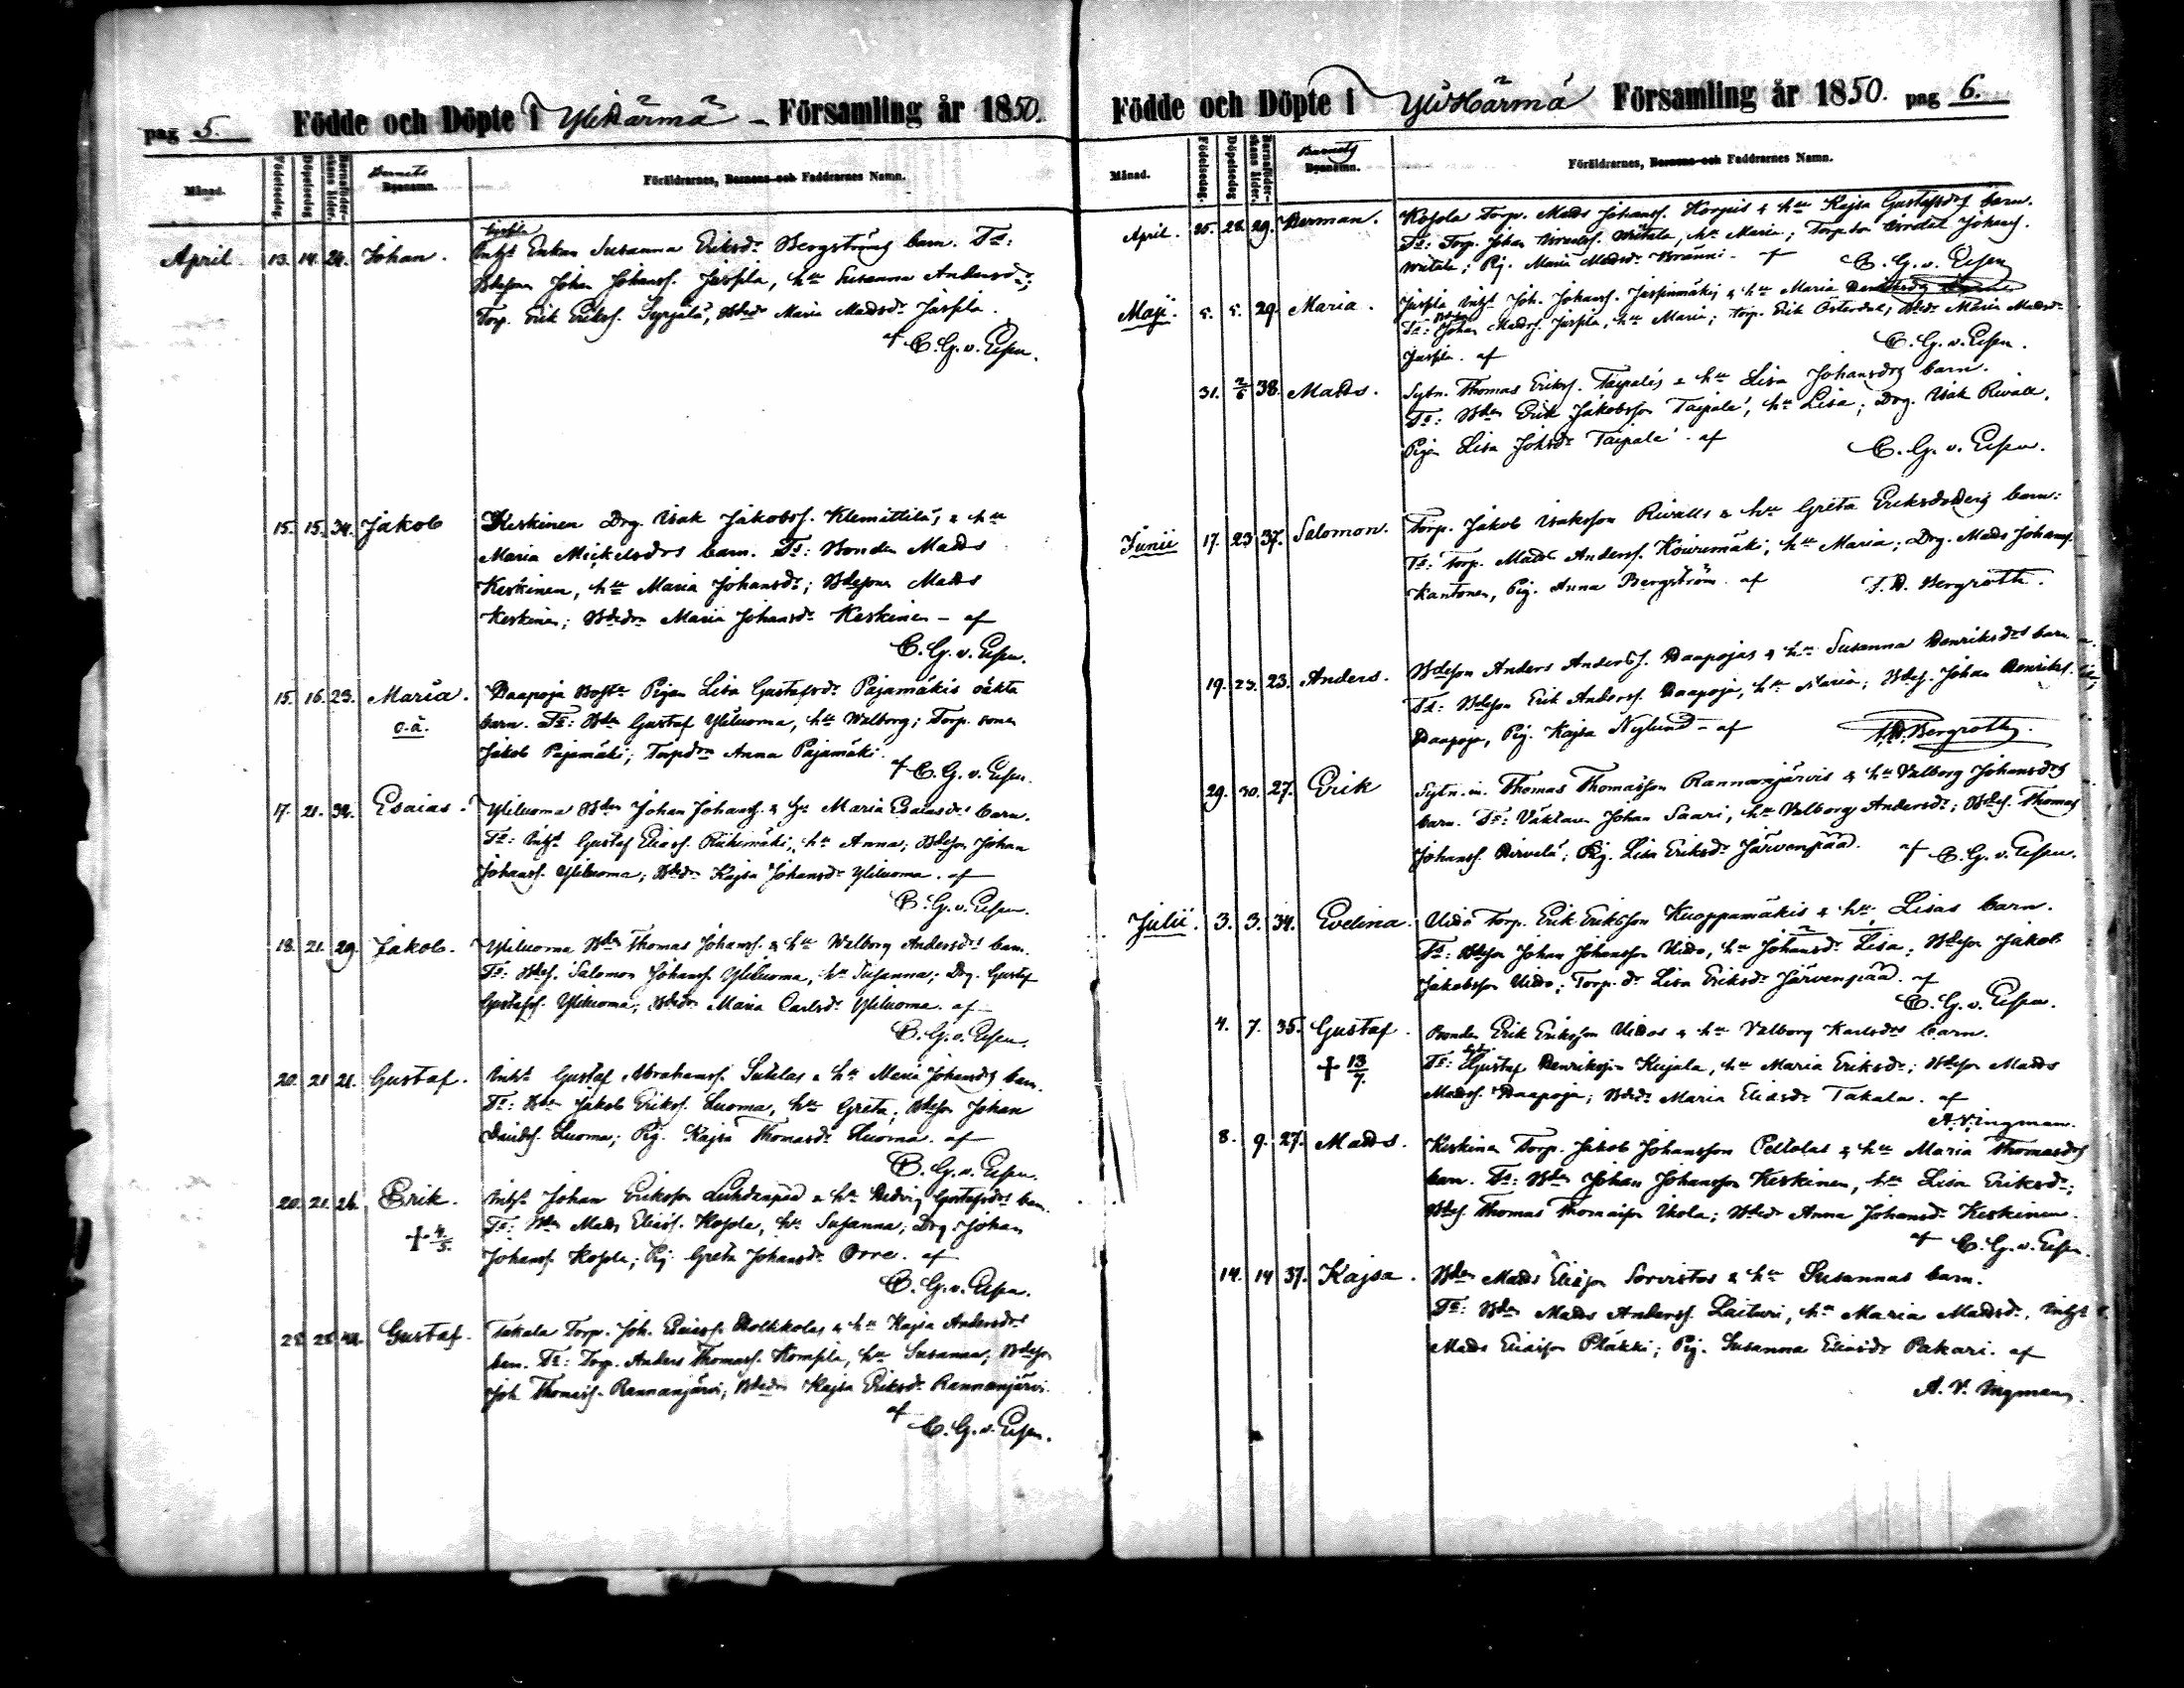 pag 5. Födde och Döpte i Ylihärmä – Församling år 1850.
Månad. Födelsedag. Döpelsedag Barnaföderskans ålder. Barnets Byanamn. Föräldrarnes, Barnens och Faddrarnes Namn.
April 13. 14. 24. Johan. Enkan Susanna Eriksdr Bergströms barn. Fs:
Bdeson Johan Johanss. Jaspla, hu Susanna Andersdr;
Torp. Erik Erikss. Syrjälä, Bdedr Maria Madsdr Jaspla.
af C. G. v. Essen.
15. 15. 34. Jakob Keskinen Drg. Isak Jakobss. Klemättiläs & hu
Maria Mickelsdrs barn. Fs: Bonden Mads
Keskinen, hu Maria Johansdr; Bdeson Mads
Keskinen; Bdedr Maria Johansdr Keskinen – af
C. G. v. Essen.
15. 16. 23. Maria. Haapoja Pigan Lisa Gustafsdr Pajamäkis oäkta
o.ä. barn. Fs: Bden Gustaf Yliluoma, hu Walborg; Torp. sonen
Jakob Pajamäki; Torpdrn Anna Pajamäki.
af C. G. v. Essen.
17. 21. 34. Esaias. Yliluoma Bden Johan Johanss. & hu Maria Esaiasdrs barn.
Fs: Inhs Gustaf Eliass. Riihimäki, hu Anna; Bdeson Johan
Johanss. Yliluoma; Bdedr Kajsa Johansdr Yliluoma. af
C. G. v. Essen.
18. 21. 29. Jakob. Yliluoma Bden Thomas Johanss. & hu Walborg Andersdrs barn.
Fs: Bdes. Salomon Johanss. Yliluoma, hu Susanna; Drg. Gustaf
Gustafss. Yliluoma; Bdedr Maria Carlsdr Yliluoma. af
C. G. v. Essen.
20. 21 21. Gustaf. Inhs Gustaf Abrahamss. & hu Maria Johansdrs barn.
Fs: Bden Jakob Erikss. Luoma, hu Greta; Bdeson Johan
Davidss. Luoma; Pig. Kajsa Thomasdr Luoma. af
C. G. v. Essen.
20. 21. 26. Erik. Inhs Johan Eriksson Luhdanpää & hu Hedvig Gustafsdrs barn.
† 4/5. Fs: Bden Mads Eliass. Kosola, hu Susanna; Drg. Johan
Johanss. Kosola; Pig. Greta Johansdr Orre. af
C. G. v. Essen.
28. 28. 42. Gustaf. Takala Torp. Joh. Esaiass. Holkkolas & hu Kajsa Andersdrs
barn. Fs: Torp. Anders Thomass. Kompla, hu Susanna; Bdeson
Joh. Thomass. Rannanjärvi; Bdedr Kajsa Eriksdr Rannanjärvi
af C. G. v. Essen.
Födde och Döpte i YliHärmä Församling år 1850. pag 6.
Månad. Födelsedag. Döpelsedag Barnaföderskans ålder. Barnets Byanamn. Föräldrarnes, Barnens och Faddrarnes Namn.
April. 25. 28. 29. Herman. Kosola Torp. Mads Johanss. Korpis & hu Kajsa Gustafsdrs barn.
Fs: Torp. Johan Israelss. Witala, hu Maria; Torp. son Israel Johanss.
Witala; Pig. Maria Madsdr Bränni – af C. G. v. Essen
Maji. 5. 5. 29. Maria. Jaspla Inhs Joh. Johanss. Jaspinmäkis & hu Maria
Fs: Bden Johan Madss. Jaspla, hu Maria; Torp. Erik Österdal; Bdedr Maria Madsdr
Jaspla. af C. G. v. Essen.
31. 2/6 38. Mads. Sytn. Thomas Erikss. Taipales & hu Lisa Johansdrs barn.
Fs: Bden Erik Jakobsson Taipale, hu Lisa; Drg. Isak Rivall,
Pigan Lisa Johsdr Taipale. af C. G. v. Essen.
Junii 17. 23 37. Salomon. Torp. Jakob Isaksson Rivalls & hu Greta Eriksdotters barn:
Fs: Torp. Mads Anderss. Koivumäki, hu Maria; Drg. Mads Johanss.
Kantonen, Pig. Anna Bergström. af F. D. Bergroth.
19. 23. 23. Anders. Bdeson Anders Anderss. Haapojas & hu Susanna Henriksdrs barn.
Fs: Bdeson Erik Anderss. Haapoja, hu Maria; Bdes. Johan Henrikss.
Haapoja, Pig. Kajsa Nylund – af F. D. Bergroth.
29. 30. 27. Erik Sytn. m. Thomas Thomasson Rannanjärvis & hu Valborg Johansdrs
barn. Fs: Väktaren Johan Saari, hu Valborg Andersdr; Bdes. Thomas
Johanss. Hirvelä; Pig. Lisa Eriksdr Järvenpää. af C. G. v. Essen.
Julii. 3. 3. 34. Evelina. Uido Torp. Erik Eriksson Kuoppamäkis & hu Lisas barn.
Fs: Bdeson Johan Johansson Uido, hu Johansdr Lisa; Bdeson Jakob
Jakobsson Uido; Torp. dr Lisa Eriksdr Järvenpää. af
C. G. v. Essen.
4. 7. 35. Gustaf. Bonden Erik Eriksson Uidos & hu Valborg Karlsdrs barn.
† 13/7. Fs: Gustaf Henriksson Kujala, hu Maria Eriksdr; Bdeson Mads
Madss. Haapoja; Bdedr Maria Eliasdr Takala. af
A. V. Ingman.
8. 9. 27. Mads. Keskinen Torp. Jakob Johansson Peltolas & hu Maria Thomasdrs
barn. Fs: Bden Johan Johansson Keskinen, hu Lisa Eriksdr;
Bdes. Thomas Thomasson Ikola; Bdedr Anna Johansdr Keskinen.
af C. G. v. Essen.
14. 14 37. Kajsa. Bden Mads Eliasson Sorvistos & hu Susannas barn.
Fs: Bden Mads Anderss. Laituri, hu Maria Madsdr, Inhs
Mads Eliasson Pläkki; Pig. Susanna Eliasdr Pakari. af
A. V. Ingman.